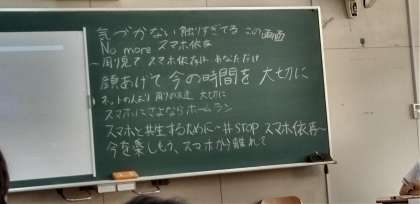 気づかない 触りすぎてる この画面
No more スマホ依存
~周り見て スマホ依存は あなただけ
顔あげて 今の時間を 大切に
ネットの人より 周りの友達 大切に
スマホにさよならホームラン
スマホと共生するために~#STOP スマホ依存~
今を楽しもう、スマホから離れて